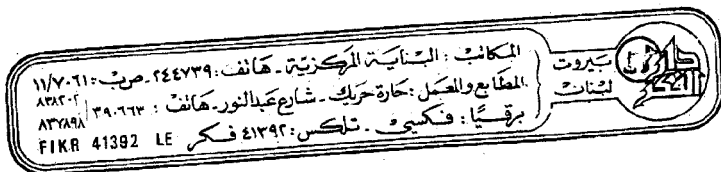 دار الفكر
بيروت
لبنان
المكاتب : البناية المركزية - هاتف : ٢٤٤٧٣٩ - ص.ب : ١١/٧٠٦١
المطابع والمعمل : حارة حريك - شارع عبدالنور - هاتف : ٣٩٠٦٦٣ / ٨٣٨٢٠٢
٨٣٧٨٩٨
برقيًا : فكسي - تلكس : ٤١٣٩٢ فكر FIKR 41392 LE